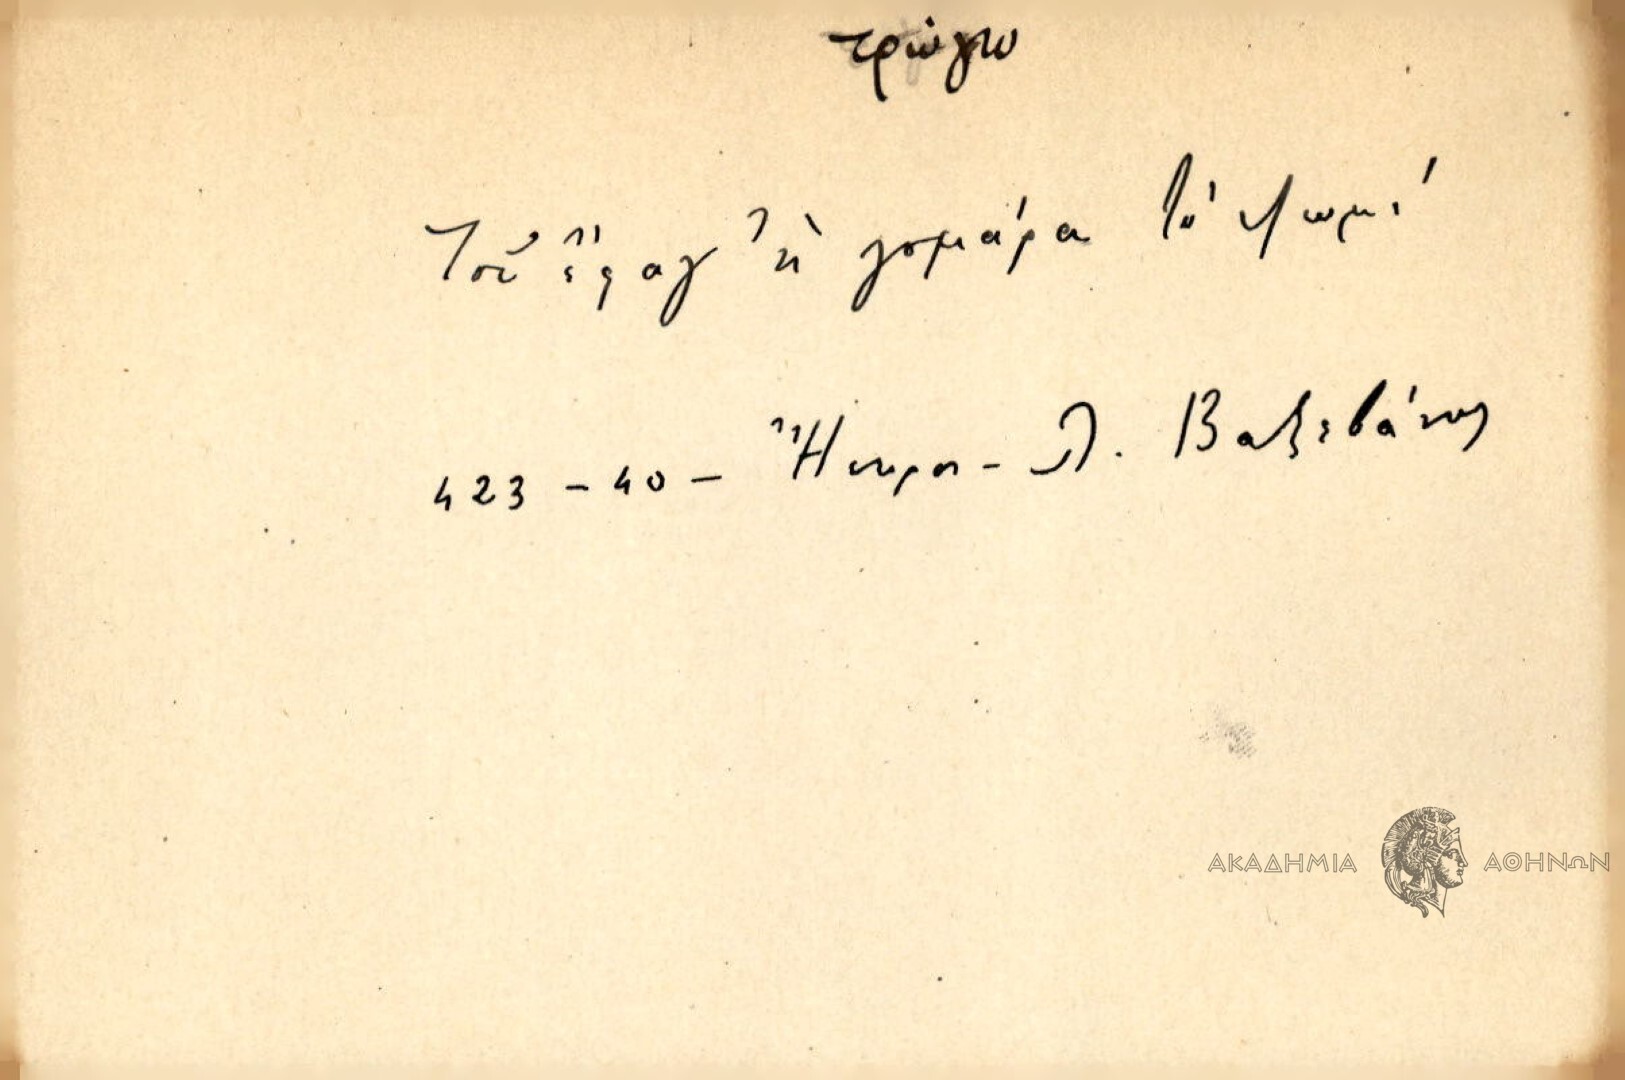 τρώγω
Τοῦ ἔφαγ' ἡ γομάρα τὸ ψωμί
423 - 40 - Ἤπειρος - Λ. Βαξεβάνης
ΑΚΑΔΗΜΙΑ ΑΘΗΝΩΝ